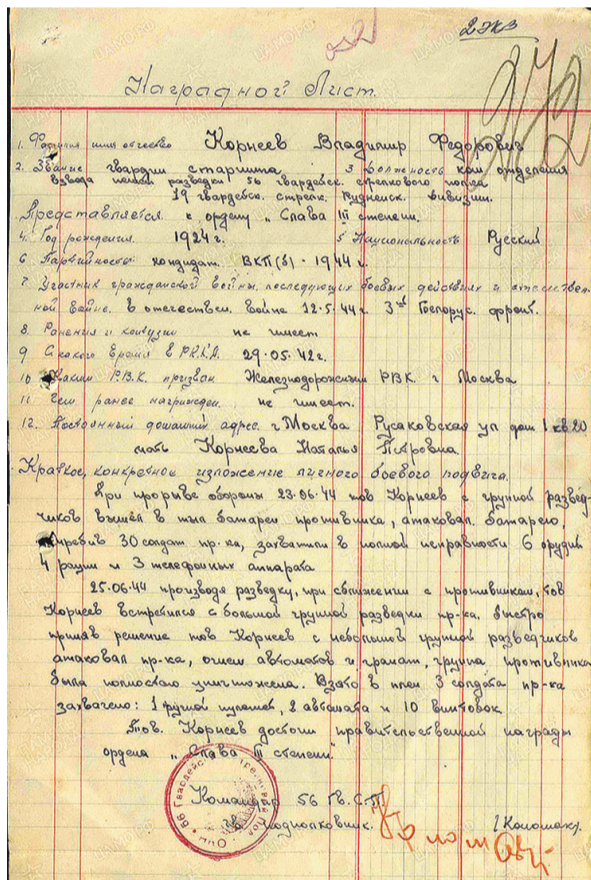 2 экз
272
Наградной Лист.
1. Фамилия имя отчество Корнеев Владимир Федорович
2. Звание гвардии старшина 3 Должность ком отделения
взвода пешей разведки 56 гвардейск. стрелкового полка
19 гвардейск. стрелк. Рудненск. дивизии.
Представляется к ордену „Слава III степени.
4. Год рождения 1924 г. 5 Национальность Русский
6 Партийность кандидат ВКП(б) - 1944 г.
7. Участник гражданской войны, последующих боевых действиях и отечествен-
ной войне. в отечествен. войне 12.5.44 г. 3ий Белорус. фронт.
8. Ранения и контузии не имеет
9 С какого время в РККА. 29.05.42 г.
10 Каким Р.В.К. призван Железнодорожным РВК. г Москва
11 Чем ранее награжден. не имеет.
12. Постоянный домашний адрес. г Москва Русаковская ул дом 1 кв 20
мать Корнеева Наталья Петровна.
Краткое, конкретное изложение личного боевого подвига.
При прорыве обороны 23.06.44 тов Корнеев с группой развед-
чиков вышел в тыл батареи противника, атаковал батарею,
истребив 30 солдат пр-ка, захватили в полной исправности 6 орудий
4 рации и 3 телефонных аппарата
25.06.44 производя разведку, при сближении с противником, тов
Корнеев встретился с большой группой разведки пр-ка. быстро
приняв решение тов Корнеев с небольшой группой разведчиков
атаковал пр-ка, огнем автоматов и гранат, группа противника
была полностью уничтожена. Взято в плен 3 солдата пр-ка
захвачено: 1 ручной пулемет, 2 автомата и 10 винтовок
Тов. Корнеев достоин правительственной награды
ордена „Слава III степени"
Командир 56 Гв. С.П.
Гв. подполковник. (Коношак).